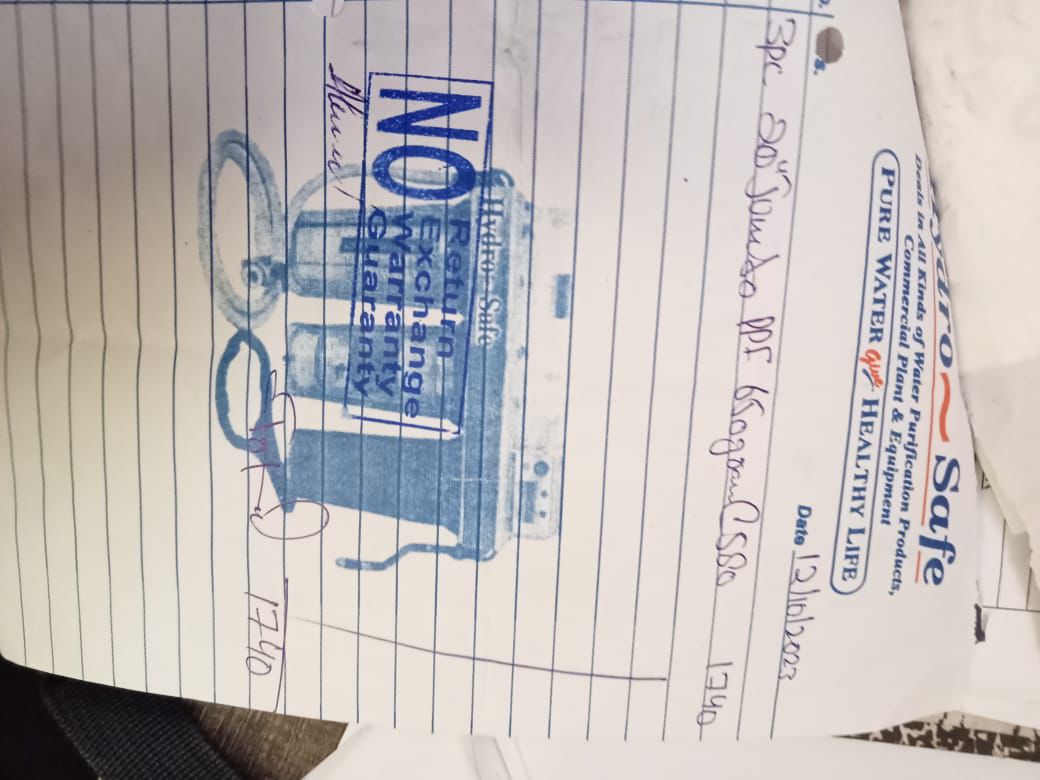 Hydro Safe
Deals in All Kinds of Water Purification Products,
Commercial Plant & Equipment
PURE WATER Give HEALTHY LIFE
Date 12/10/2023
3pc 20" Jumbo PPF 650gram C580 1740
Hydro Safe
NO
Return
Exchange
Warranty
Guaranty
1740